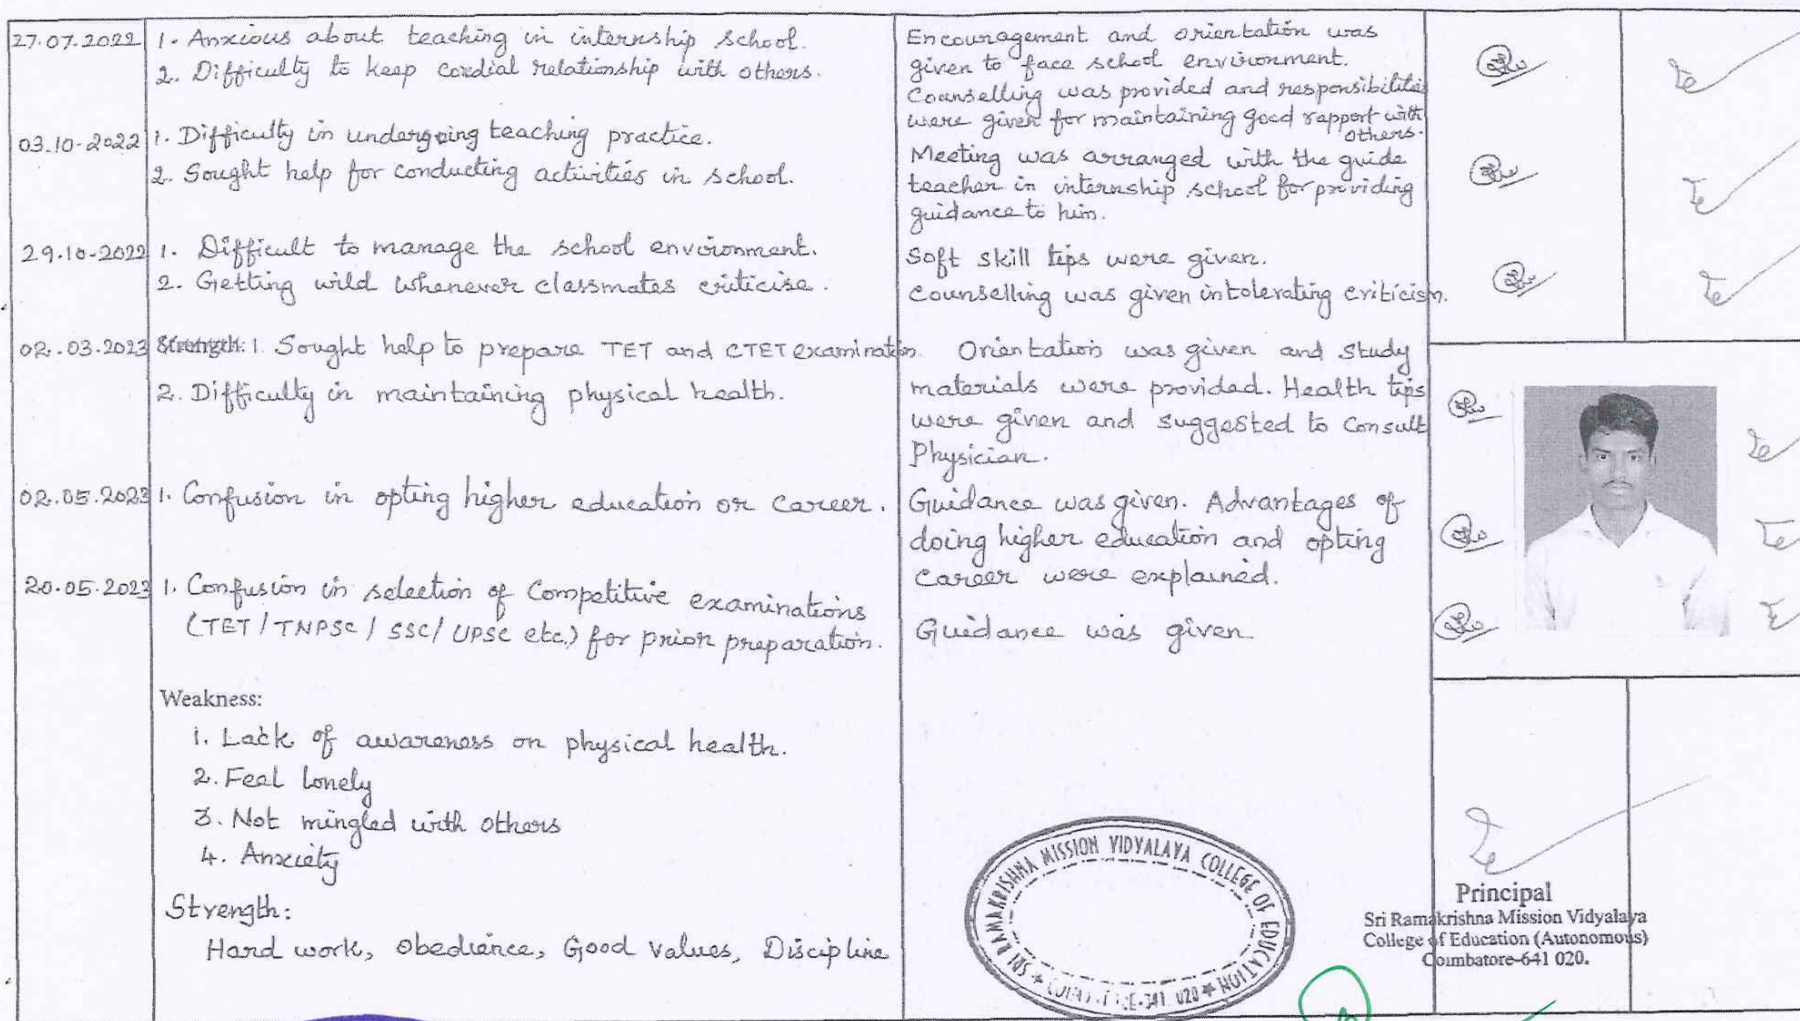 27.07.2022 1. Anxious about teaching in internship school.
2. Difficulty to keep cordial relationship with others.
Encouragement and orientation was
given to face school environment.
Counselling was provided and responsibilities
were given for maintaining good rapport with
others.
03.10-2022 1. Difficulty in undergoing teaching practice.
2. Sought help for conducting activities in school.
Meeting was arranged with the guide
teacher in internship school for providing
guidance to him.
29.10-2022 1. Difficult to manage the school environment.
2. Getting wild whenever classmates criticise.
Soft skill tips were given.
Counselling was given in tolerating criticism.
02.03.2023 Strength: 1. Sought help to prepare TET and CTET examination.
2. Difficulty in maintaining physical health.
Orientation was given and study
materials were provided. Health tips
were given and suggested to Consult
Physician.
02.05.2023 1. Confusion in opting higher education or career.
Guidance was given. Advantages of
doing higher education and opting
career were explained.
20.05.2023 1. Confusion in selection of Competitive examinations
(TET / TNPSC / SSC / UPSC etc.) for prior preparation.
Guidance was given
Weakness:
1. Lack of awareness on physical health.
2. Feel lonely
3. Not mingled with others
4. Anxiety
Strength:
Hard work, Obedience, Good values, Discipline
SRI RAMAKRISHNA MISSION VIDYALAYA COLLEGE OF EDUCATION
Principal
Sri Ramakrishna Mission Vidyalaya
College of Education (Autonomous)
Coimbatore-641 020.